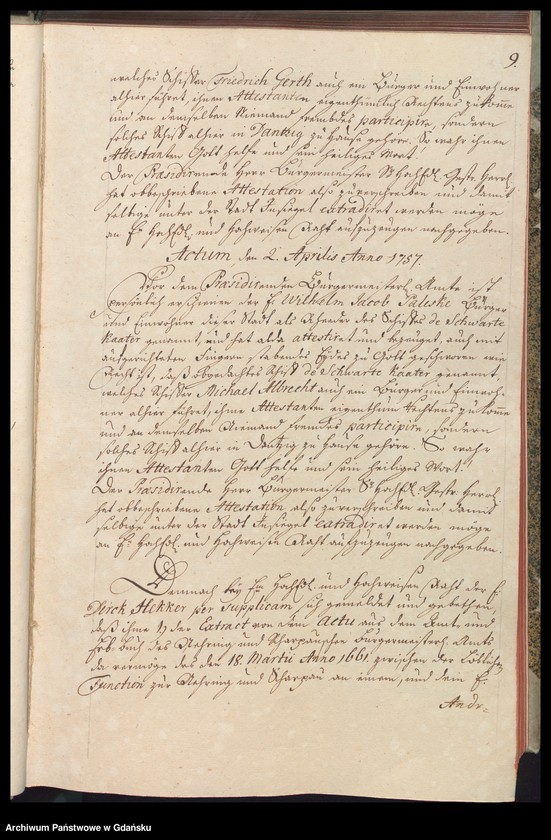 9.
welches Schiffer Friedrich Gerth auch ein Bürger und Einwohner
alhier führet, ihnen Attestanten eigenthümlich Rechtens zukomme
und an demselben Niemand frembdes participire, sondern
solches Schiff alhier in Dantzig zu Hause gehöre. So wahr ihnen
Attestanten Gott helfe und sein heiliges Wort!
Der Præsidirende Herr Bürgermeister Herrl.
hat obbeschriebene Attestation also zuverschreiben und damit
selbige unter der Stadt Insiegel extradiret werden möge
an E. und Hochweisen Raht auszuzeugen nachgegeben.
Actum den 2. Aprilis Anno 1757.
Vor dem Præsidirenden Bürgermeisterl. Amte ist
persönlich erschienen der H. Wilhelm Jacob Paleske Bürger
und Einwohner dieser Stadt als Rheeder des Schiffes de Schwarte
Kaater genannt, und hat alda attestiret und bezeuget, auch mit
aufgerichteten Fingern stabendes Eydes zu Gott geschworen wie
Recht ist, daß obgedachtes Schiff de Schwarte Kaater genannt,
welches Schiffer Michael Albrecht auch ein Bürger und Einwoh-
ner alhier führet, ihme Attestanten eigenthüml. Rechtens zukomme
und an demselben Niemand fremdes participire, sondern
solches Schiff alhier in Dantzig zu Hause gehöre. So wahr
ihnen Attestanten Gott helfe und sein heiliges Wort!
Der Præsidirende Herr Bürgermeister Herrl.
hat obbeschriebene Attestation also zuverschreiben und damit
selbige unter der Stadt Insiegel extradiret werden möge
an E. und Hochweisen Raht auszuzeugen nachgegeben.
Demnach bey Em und Hochweisen Raht der E.
Dirck Hekker per Supplicam sich gemeldet und gebethen,
daß ihme der Extract von dem Actu aus dem Amt und
Erb Buch des Nehring und Scharpauschen Bürgermeisterl. Amts
da vermöge des den 18. Martii Anno 1661. zwischen der Löblichen
Function zur Nehring und Scharpau an einem, und dem E.
Andr=
Archiwum Państwowe w Gdańsku